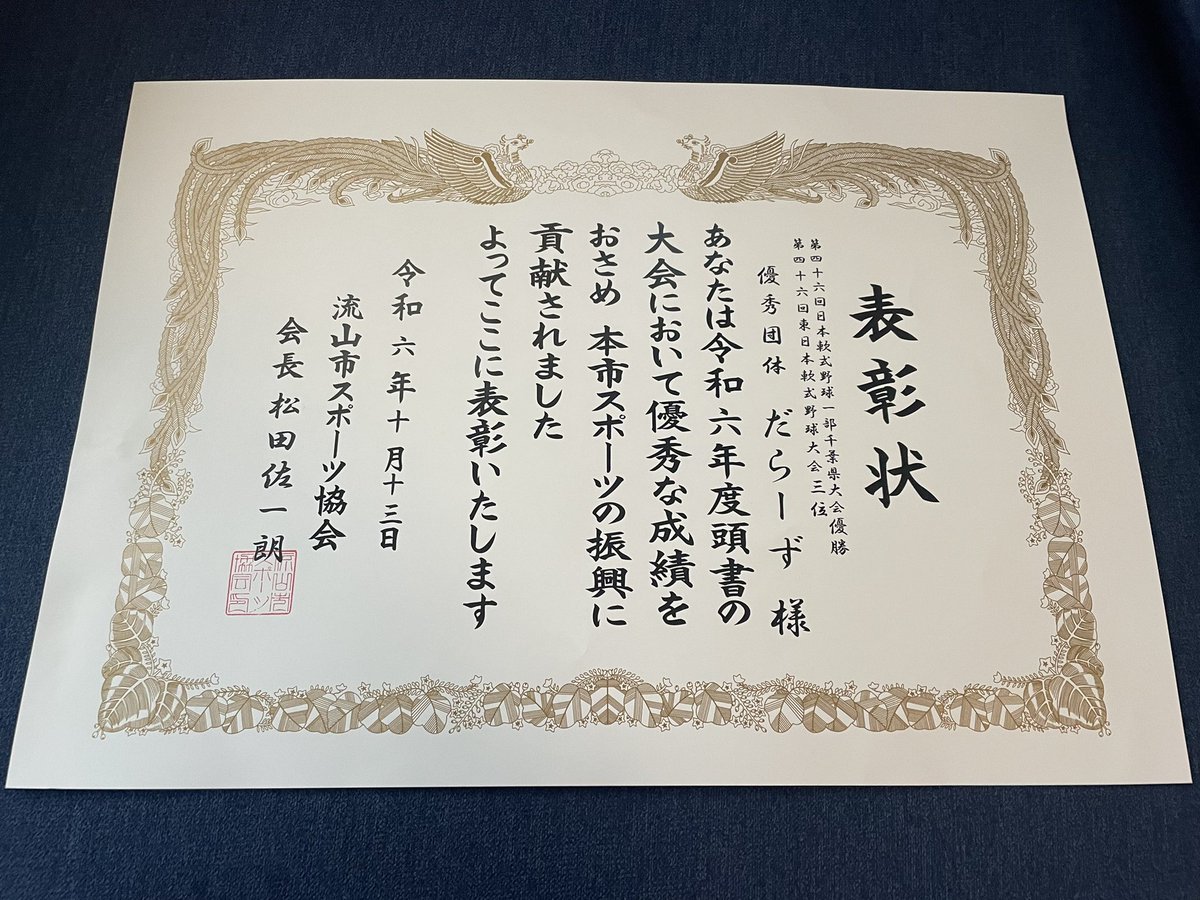 表彰状
第四十六回日本軟式野球一部千葉県大会優勝
第四十六回東日本軟式野球大会三位
優秀団体 だらーず 様
あなたは令和六年度頭書の
大会において優秀な成績を
おさめ 本市スポーツの振興に
貢献されました
よってここに表彰いたします
令和六年十月十三日
流山市スポーツ協会
会長 松田佐一朗
流山市
スポーツ
協会印